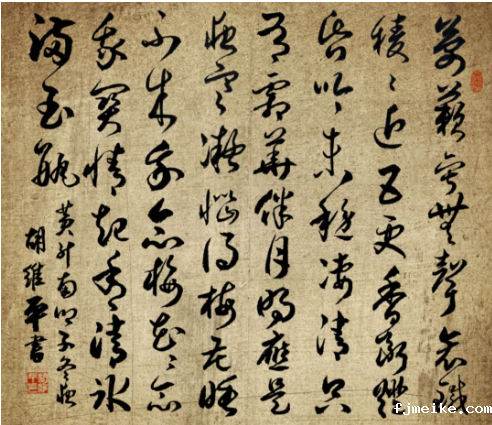 萬籟寂無聲衾鐵
稜〻近五更香斷燈
昏吟未穩凄清只
有霜華伴月明應是
夜寒凝惱得梅花睡
不成我念梅花〻念
我關情起看清冰
滿玉瓶
黄升南鄉子冬夜
胡維平書
fjmeike.com